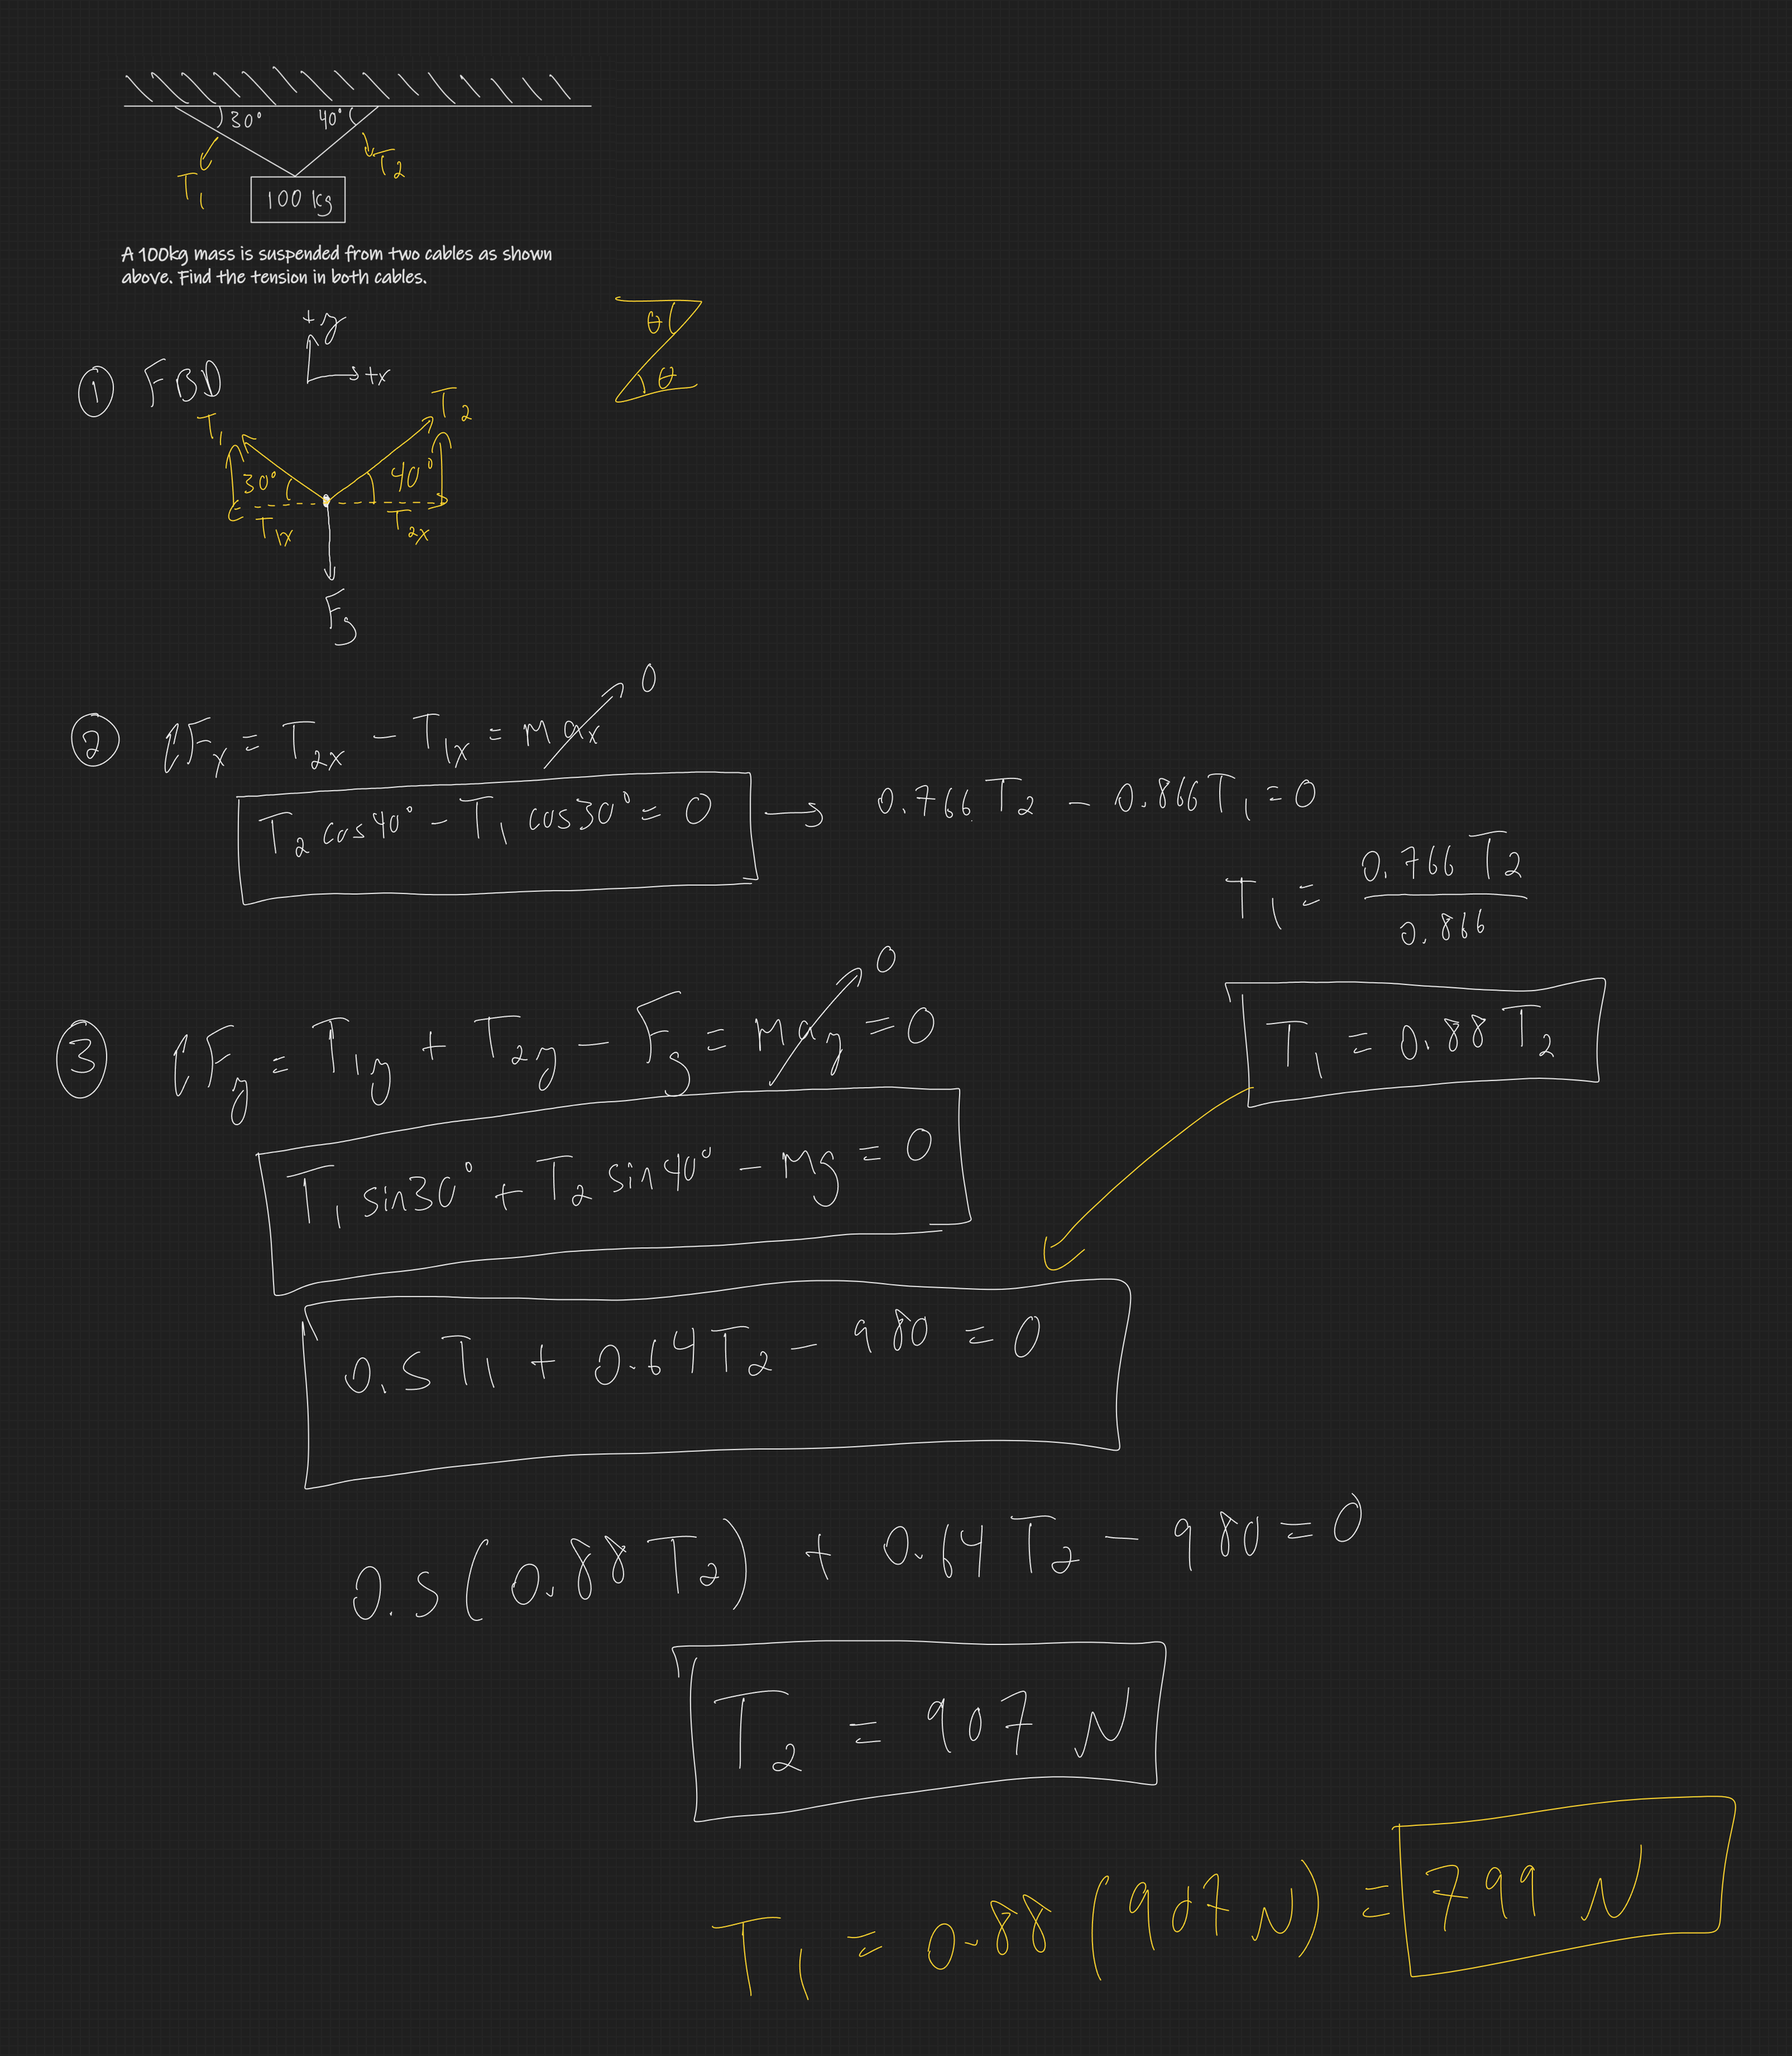 30° 40°
T₁ T₂
100 kg
A 100kg mass is suspended from two cables as shown
above. Find the tension in both cables.
+y
+x
θ
θ
① FBD
T₁ T₂
30° 40°
T₁ₓ T₂ₓ
Fg
② ΣFₓ = T₂ₓ - T₁ₓ = maₓ 0
T₂ cos40° - T₁ cos30° = 0 → 0.766 T₂ - 0.866 T₁ = 0
T₁ = 0.766 T₂ / 0.866
T₁ = 0.88 T₂
③ ΣFy = T₁y + T₂y - Fg = may = 0 0
T₁ sin30° + T₂ sin40° - mg = 0
0.5 T₁ + 0.64 T₂ - 980 = 0
0.5 (0.88 T₂) + 0.64 T₂ - 980 = 0
T₂ = 907 N
T₁ = 0.88 (907 N) = 799 N